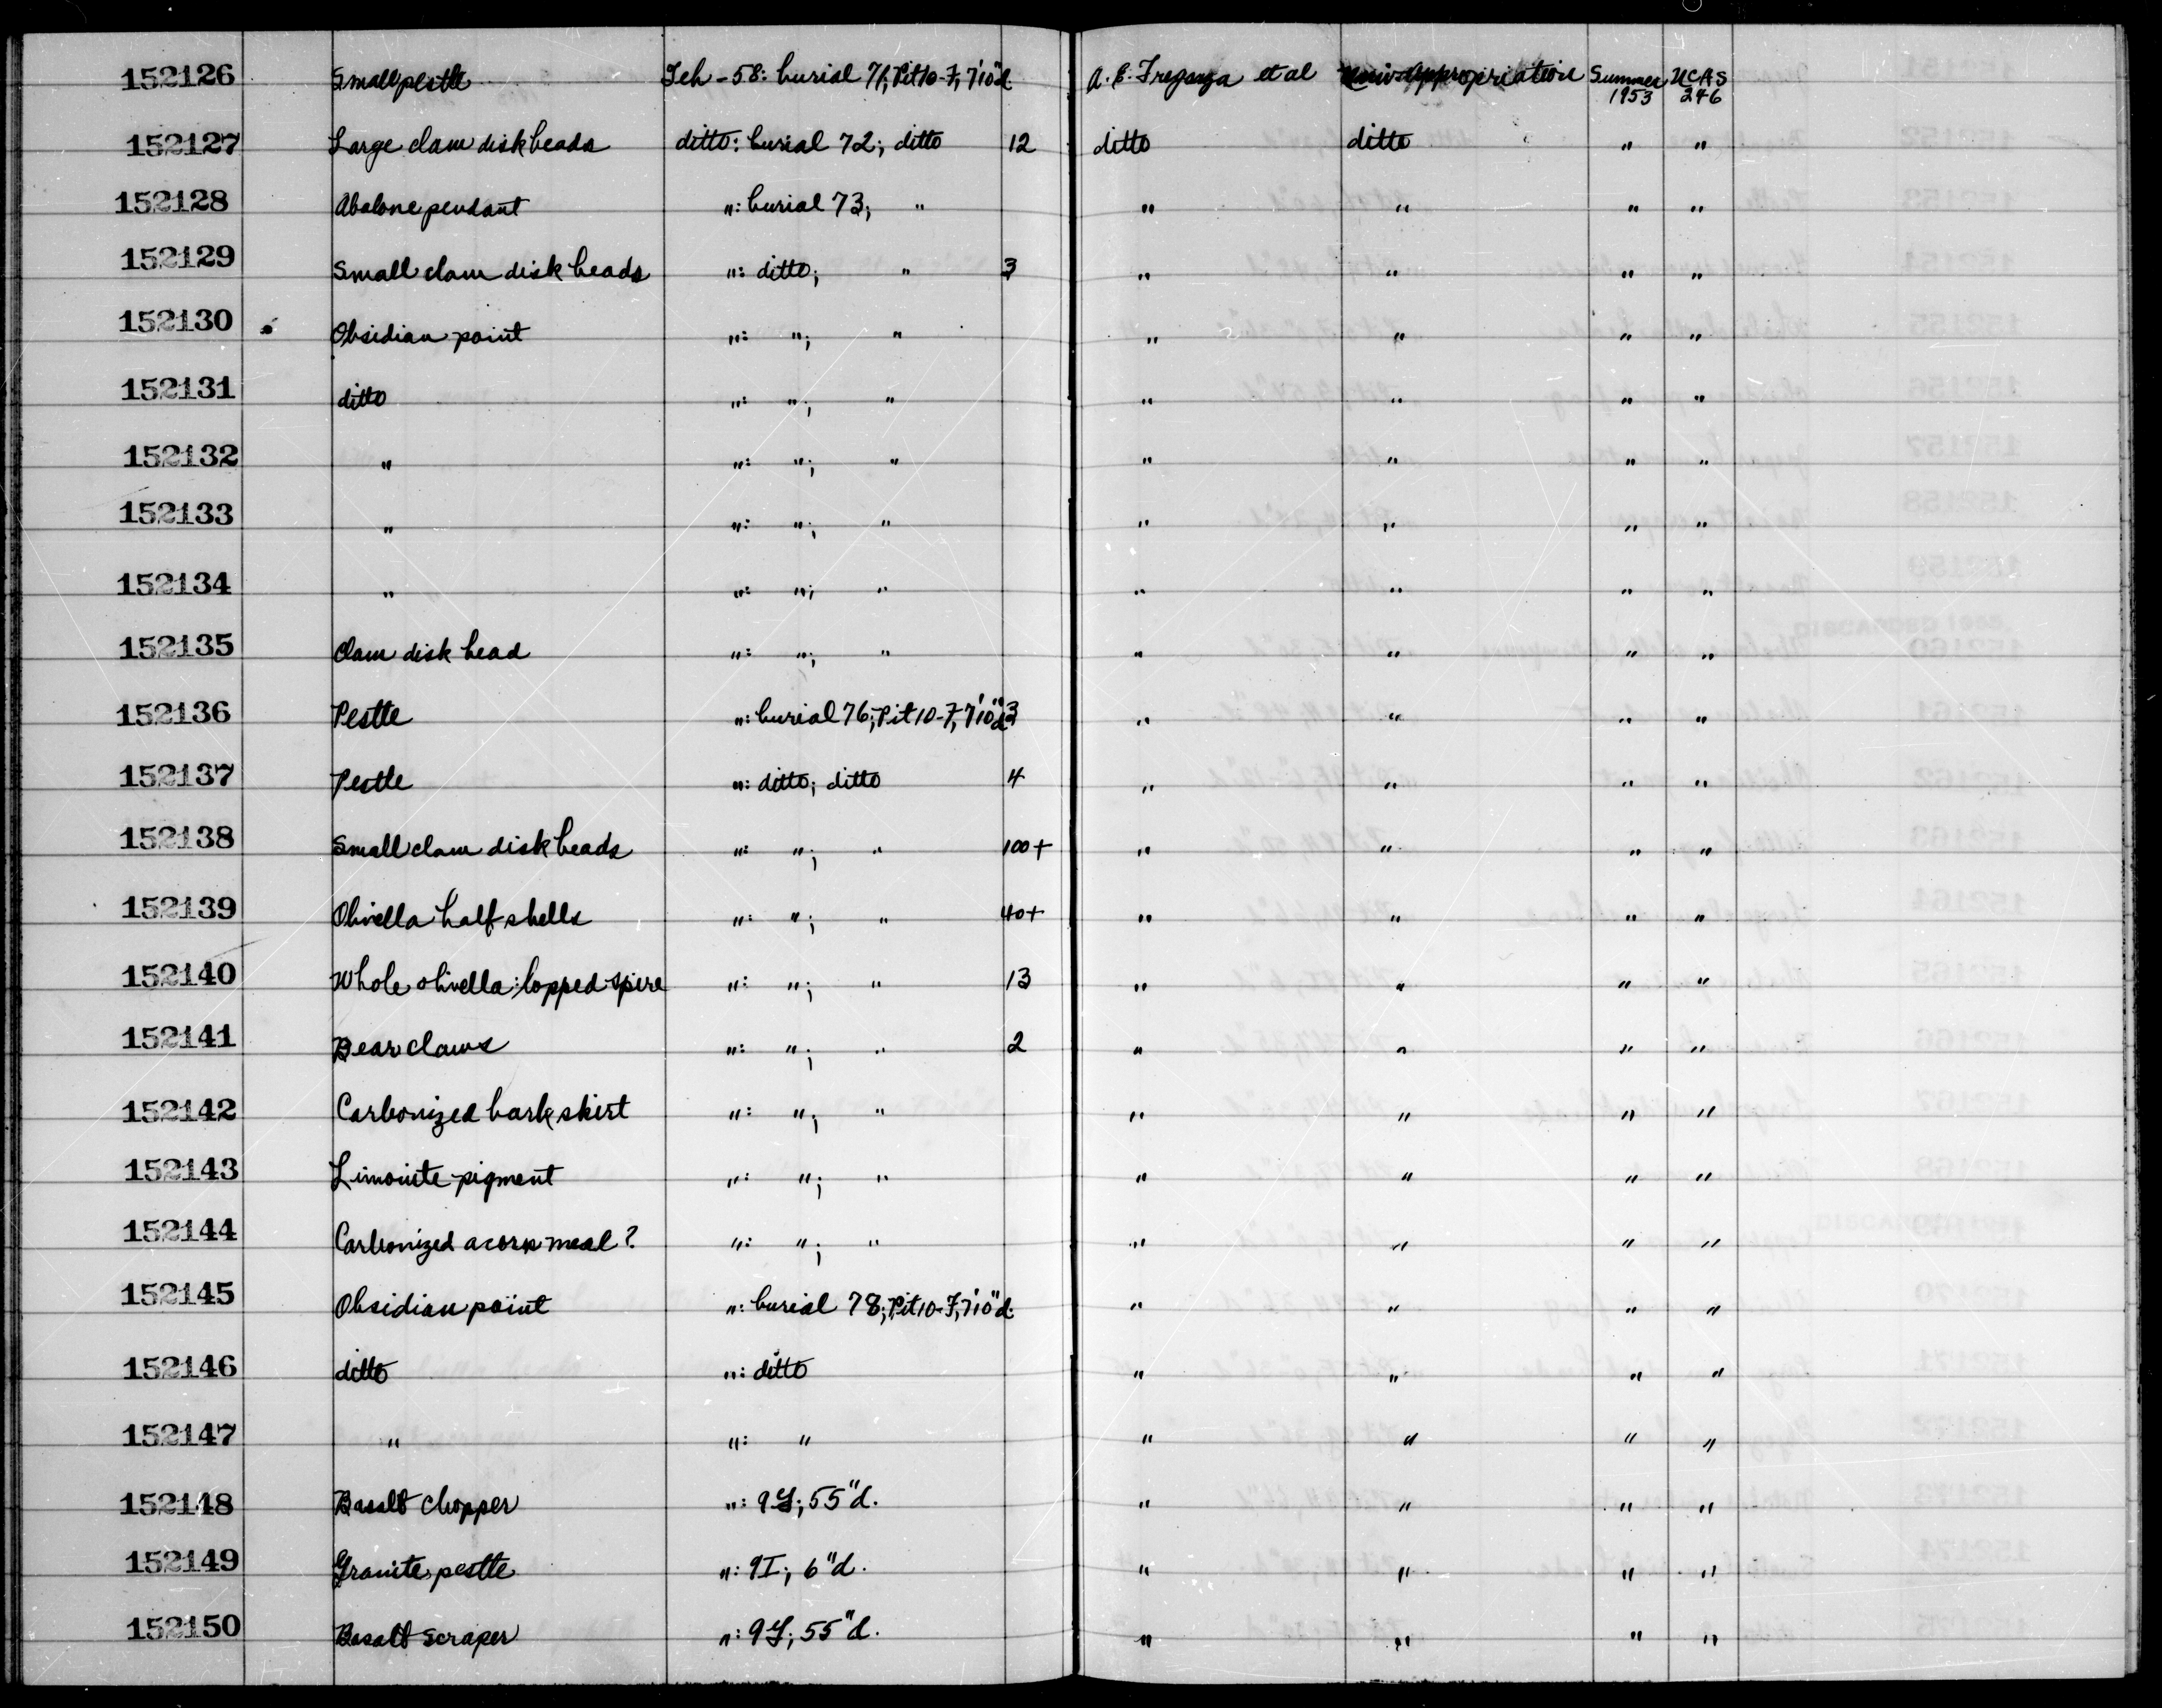 152126 Small pestle Teh-58: burial 71; Pit 10-7, 7'10"d. A. E. Treganza et al Univ. Appropriation Summer 1953 UCAS 246
152127 Large clam disk beads ditto: burial 72; ditto 12 ditto ditto " "
152128 Abalone pendant ": burial 73; " " " " "
152129 Small clam disk beads ": ditto; " 3 " " " "
152130 Obsidian point ": "; " " " " "
152131 ditto ": "; " " " " "
152132 " ": "; " " " " "
152133 " ": "; " " " " "
152134 " ": "; " " " " "
152135 Clam disk bead ": "; " " " " "
152136 Pestle ": burial 76; Pit 10-7, 7'10"d. 3 " " " "
152137 Pestle ": ditto; ditto 4 " " " "
152138 Small clam disk beads ": "; " 100+ " " " "
152139 Olivella half shells ": "; " 40+ " " " "
152140 Whole olivella: lopped spire ": "; " 13 " " " "
152141 Bear claws ": "; " 2 " " " "
152142 Carbonized bark skirt ": "; " " " " "
152143 Limonite pigment ": "; " " " " "
152144 Carbonized acorn meal? ": "; " " " " "
152145 Obsidian point ": burial 78; Pit 10-7, 7'10"d. " " " "
152146 ditto ": ditto " " " "
152147 " ": " " " " "
152148 Basalt chopper ": 9G; 55"d. " " " "
152149 Granite pestle ": 9I; 6"d. " " " "
152150 Basalt scraper ": 9G; 55"d. " " " "